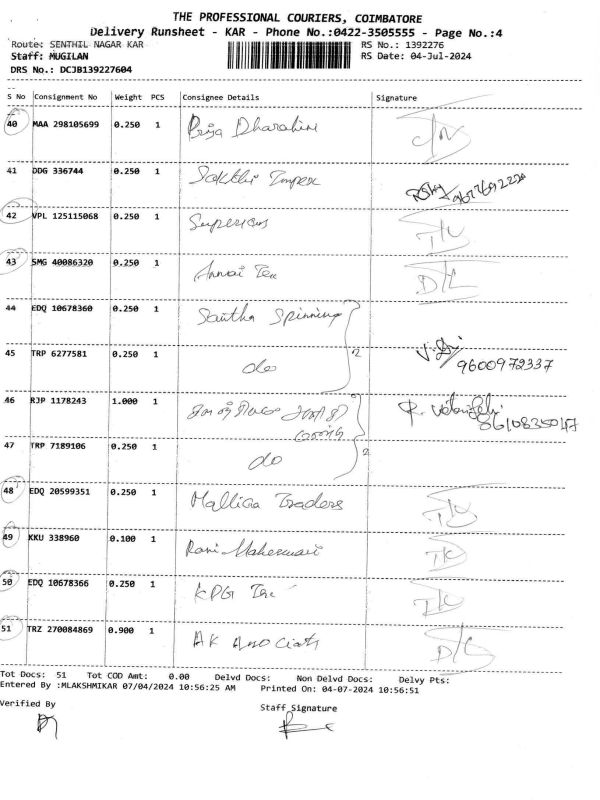 THE PROFESSIONAL COURIERS, COIMBATORE
Delivery Runsheet - KAR - Phone No.:0422-3505555 - Page No.:4
Route: SENTHIL NAGAR KAR RS No.: 1392276
Staff: MUGILAN RS Date: 04-Jul-2024
DRS No.: DCJB139227604
S No Consignment No Weight PCS Consignee Details Signature
40 MAA 298105699 0.250 1 Priya Dharshini
41 DDG 336744 0.250 1 Sakthi Impex
42 VPL 125115068 0.250 1 Superious
43 SMG 40086320 0.250 1 Annai Tex
44 EDQ 10678360 0.250 1 Saitha Spinning
45 TRP 6277581 0.250 1 do 2 9600972337
46 RJP 1178243 1.000 1
47 TRP 7189106 0.250 1 do 2
48 EDQ 20599351 0.250 1 Mallica Traders
49 KKU 338960 0.100 1 Rani Maheswari
50 EDQ 10678366 0.250 1 KPG Tex
51 TRZ 270084869 0.900 1 AK Associats
Tot Docs: 51 Tot COD Amt: 0.00 Delvd Docs: Non Delvd Docs: Delvy Pts:
Entered By :MLAKSHMIKAR 07/04/2024 10:56:25 AM Printed On: 04-07-2024 10:56:51
Verified By Staff Signature